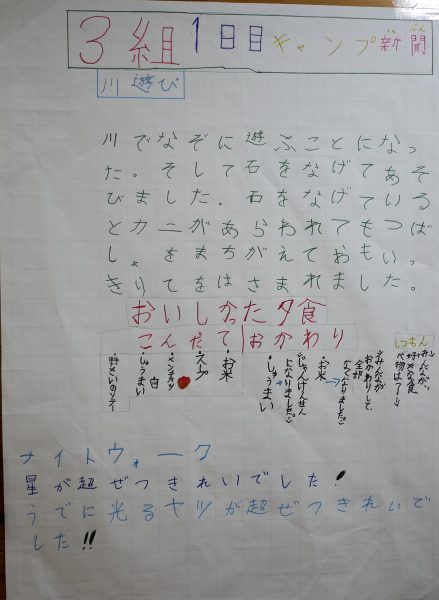 3組1日目キャンプ新聞
川遊び
川でなぞに遊ぶことになっ
た。そして石をなげてあそ
びました.石をなげている
とカニがあらわれてもつば
し、をまちがえておもいっ
きりてをはさまれました。
おいしかった夕食
こんだて おかわり
・お米
・スープ
白
・しゅうまい
・野さいのソテー
しつもん
みんなが
好きな食
べ物は
みんなが
おかわりして
全部
なくなりました。
・お米
じゃんけんせん
になりました。
・しゅうまい
ナイトウォーク
星が超ぜつきれいでした!
うでに光るヤツが超ぜつきれいで
した!!